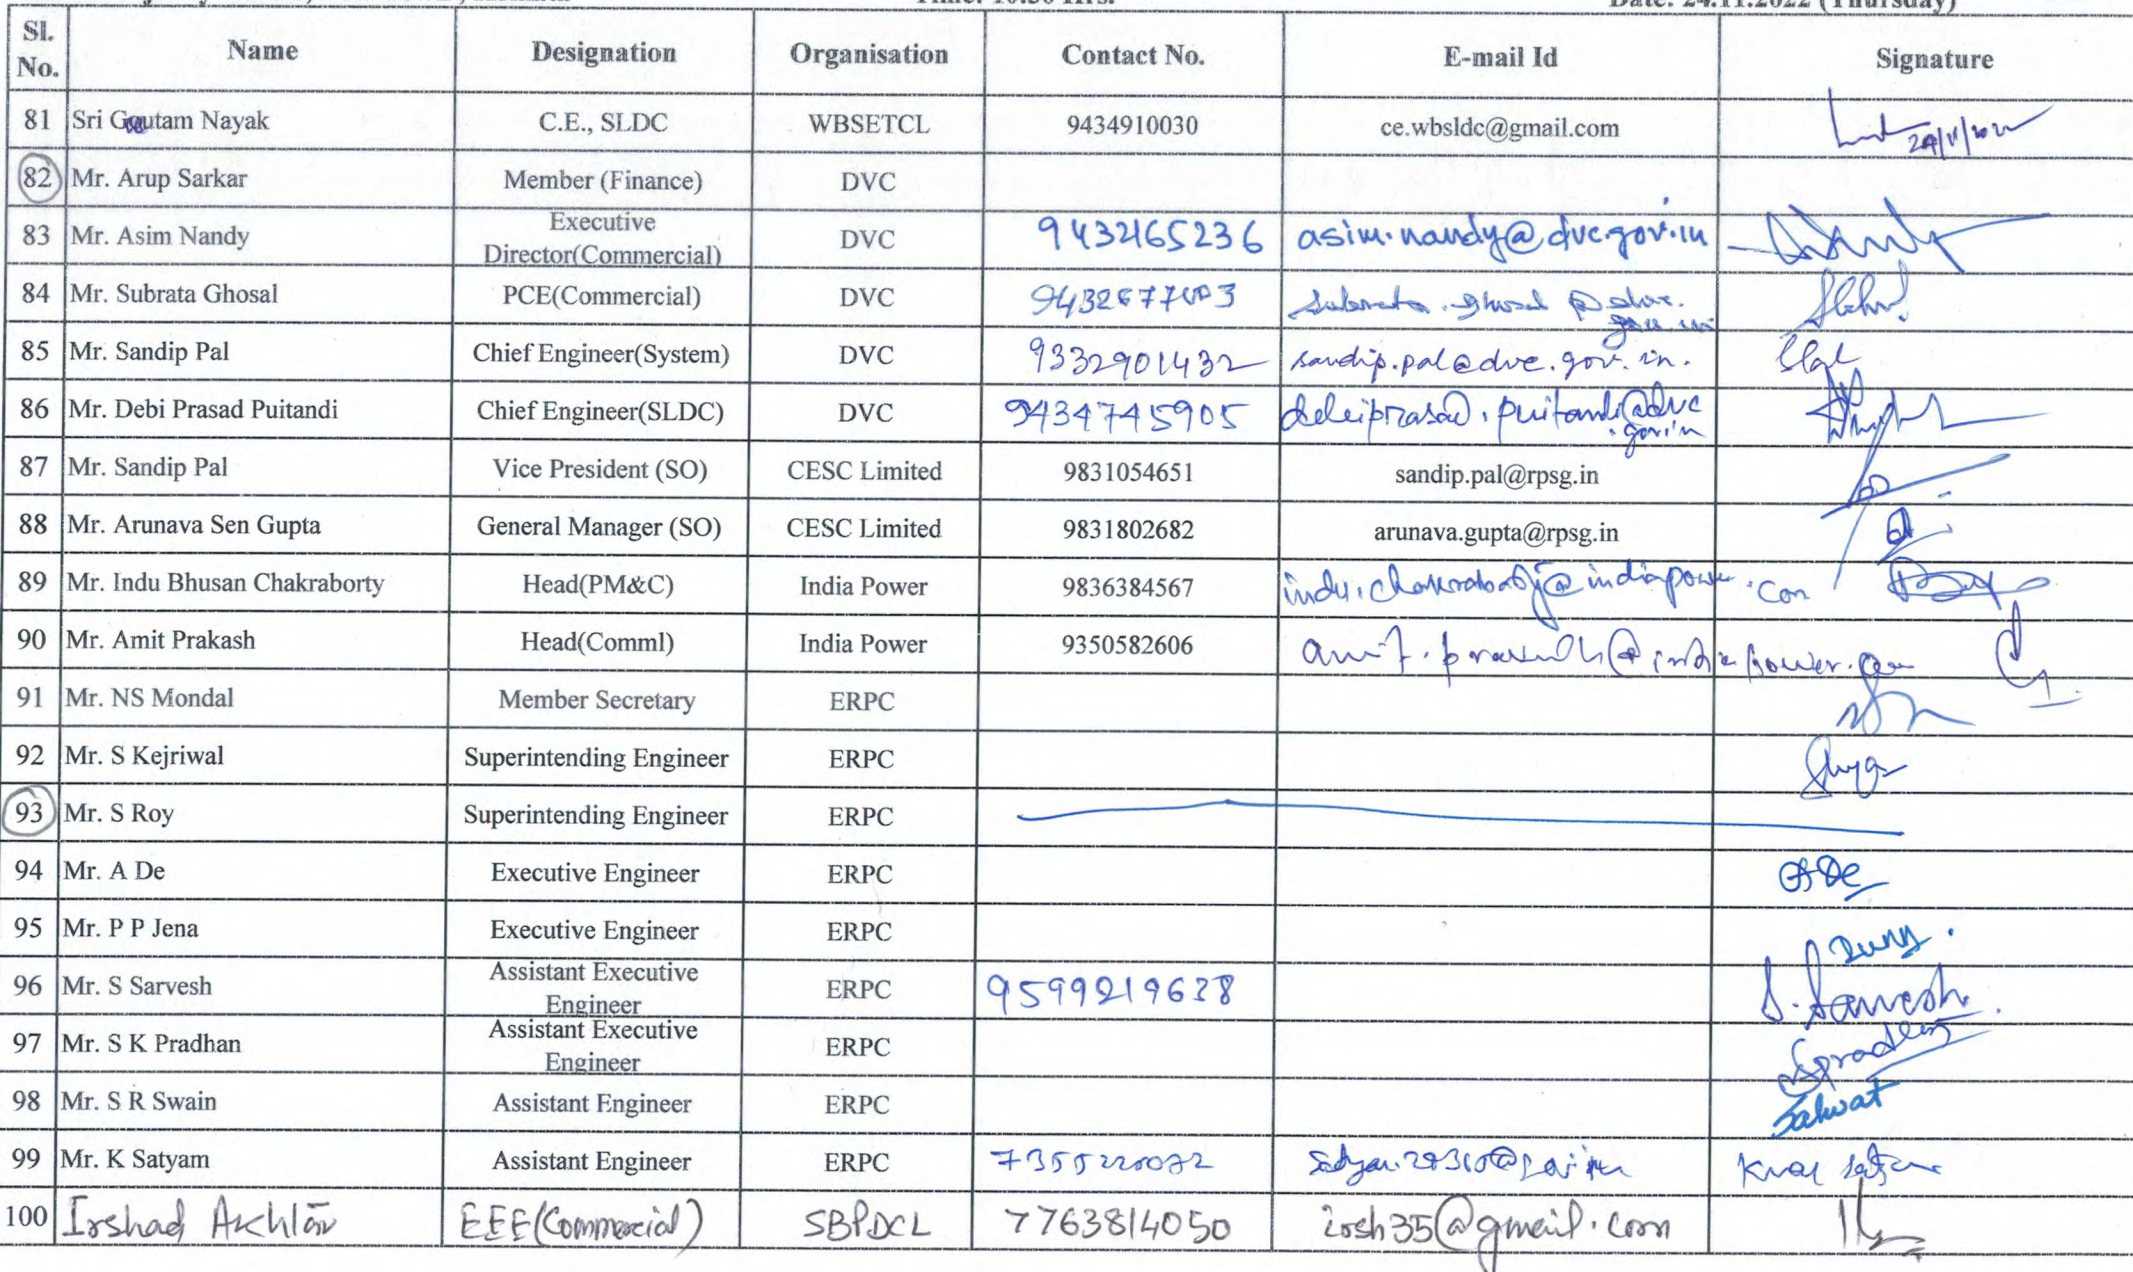 Time: 10:30 Hrs. Date: 24.11.2022 (Thursday)
Sl. No. Name Designation Organisation Contact No. E-mail Id Signature
81 Sri Gautam Nayak C.E., SLDC WBSETCL 9434910030 ce.wbsldc@gmail.com
82 Mr. Arup Sarkar Member (Finance) DVC
83 Mr. Asim Nandy Executive Director(Commercial) DVC 9432165236 asim.nandy@dvc.gov.in
84 Mr. Subrata Ghosal PCE(Commercial) DVC subrata.ghosal@dvc.gov.in
85 Mr. Sandip Pal Chief Engineer(System) DVC 9332901432 sandip.pal@dvc.gov.in.
86 Mr. Debi Prasad Puitandi Chief Engineer(SLDC) DVC 9434745905 debiprasad.puitandi@dvc.gov.in
87 Mr. Sandip Pal Vice President (SO) CESC Limited 9831054651 sandip.pal@rpsg.in
88 Mr. Arunava Sen Gupta General Manager (SO) CESC Limited 9831802682 arunava.gupta@rpsg.in
89 Mr. Indu Bhusan Chakraborty Head(PM&C) India Power 9836384567
90 Mr. Amit Prakash Head(Comml) India Power 9350582606 amit.prakash@indiapower.com
91 Mr. NS Mondal Member Secretary ERPC
92 Mr. S Kejriwal Superintending Engineer ERPC
93 Mr. S Roy Superintending Engineer ERPC
94 Mr. A De Executive Engineer ERPC ADe
95 Mr. P P Jena Executive Engineer ERPC
96 Mr. S Sarvesh Assistant Executive Engineer ERPC 9599219628 S. Sarvesh.
97 Mr. S K Pradhan Assistant Executive Engineer ERPC
98 Mr. S R Swain Assistant Engineer ERPC
99 Mr. K Satyam Assistant Engineer ERPC
100 Irshad Akhtar EEE(Commercial) SBPDCL 7763814050 irsh35@gmail.com